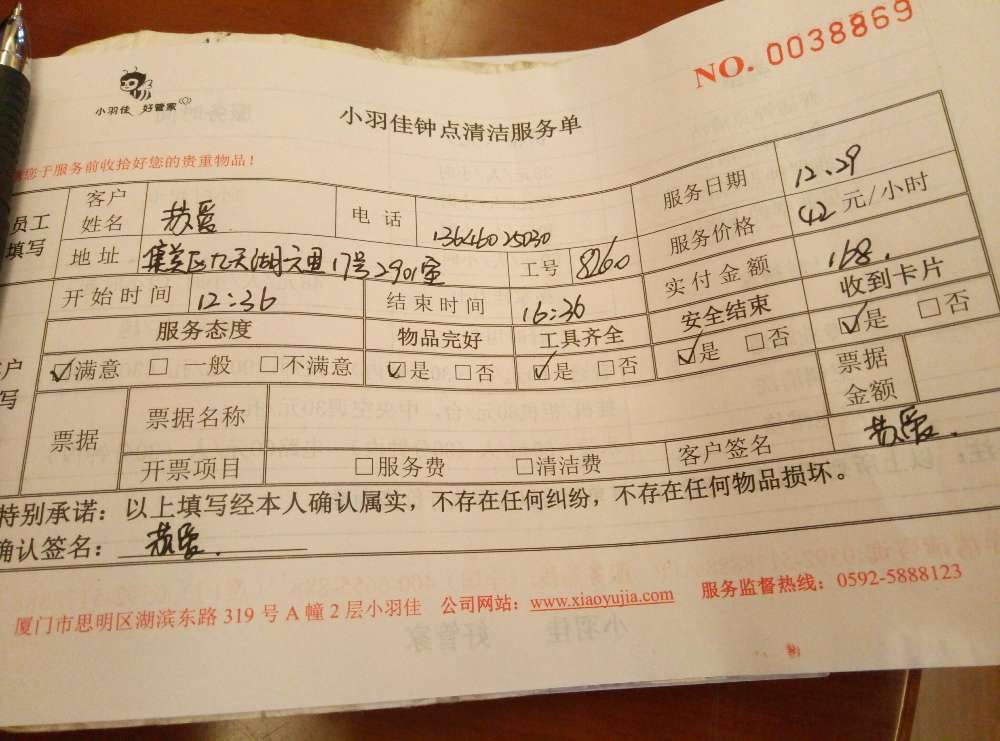 NO. 0038869
小羽佳 好管家
小羽佳钟点清洁服务单
您于服务前收拾好您的贵重物品！
员工填写 客户姓名 苏爱 电话 13646025030 服务日期 12.29
地址 集美区九天湖元里17号2901室 工号 8260 服务价格 42 元/小时
开始时间 12:36 结束时间 16:36 实付金额 168.
服务态度 物品完好 工具齐全 安全结束 收到卡片
☑满意 □一般 □不满意 ☑是 □否 ☑是 □否 ☑是 □否 ☑是 □否
票据 票据名称 票据金额
开票项目 □服务费 □清洁费 客户签名 苏爱.
特别承诺：以上填写经本人确认属实，不存在任何纠纷，不存在任何物品损坏。
确认签名： 苏爱.
厦门市思明区湖滨东路 319 号 A 幢 2 层小羽佳 公司网站：www.xiaoyujia.com 服务监督热线：0592-5888123